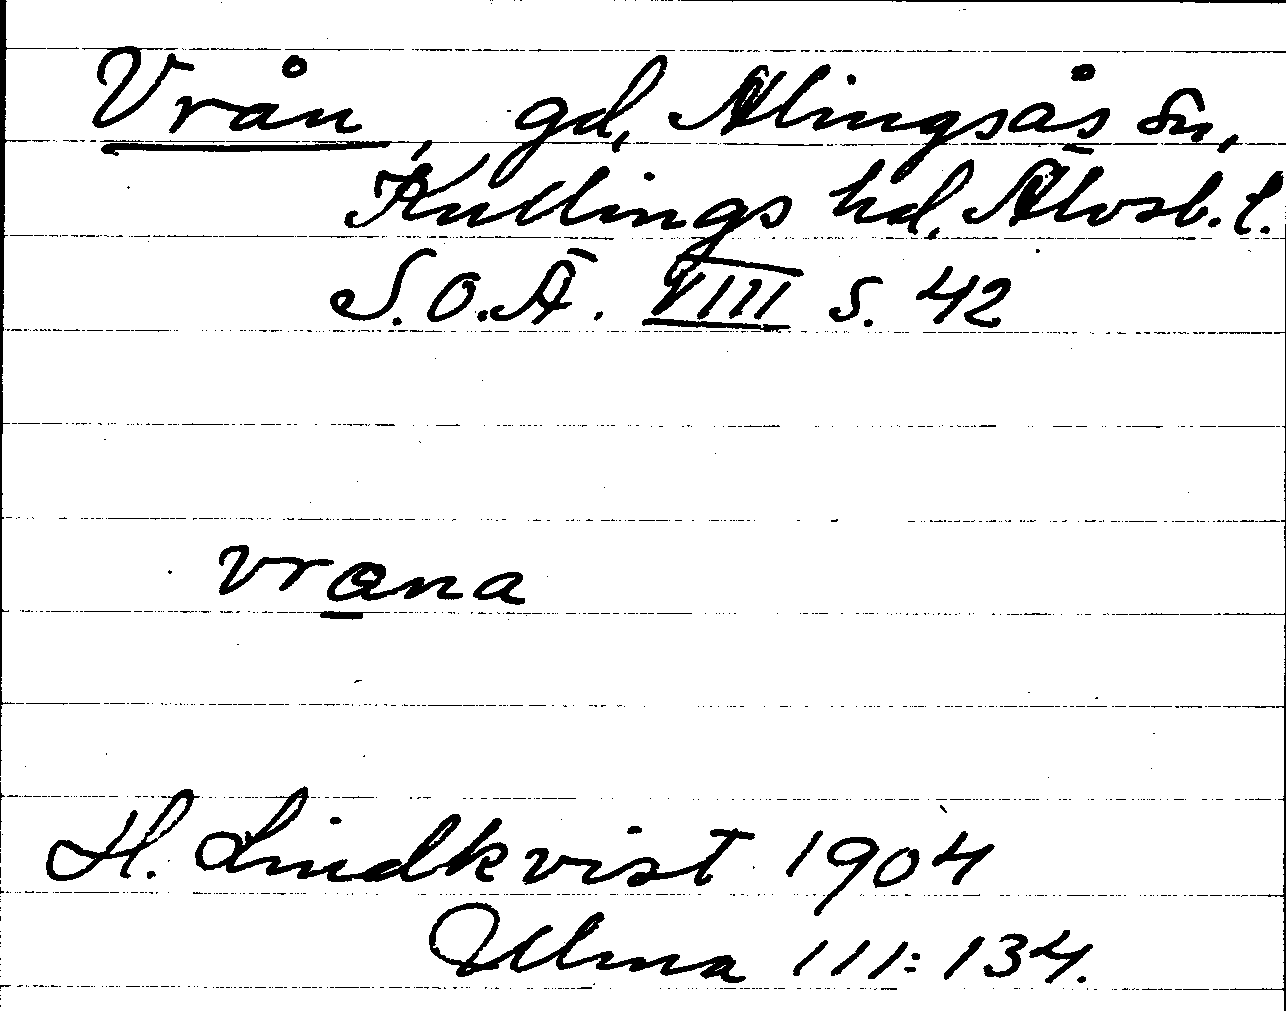 Vrån, gd, Alingsås sn,
Kullings hd, Älvsb. l.
S.O.Ä. VIII s. 42
vrana
H. Lindkvist 1904
Ulma 111:134.